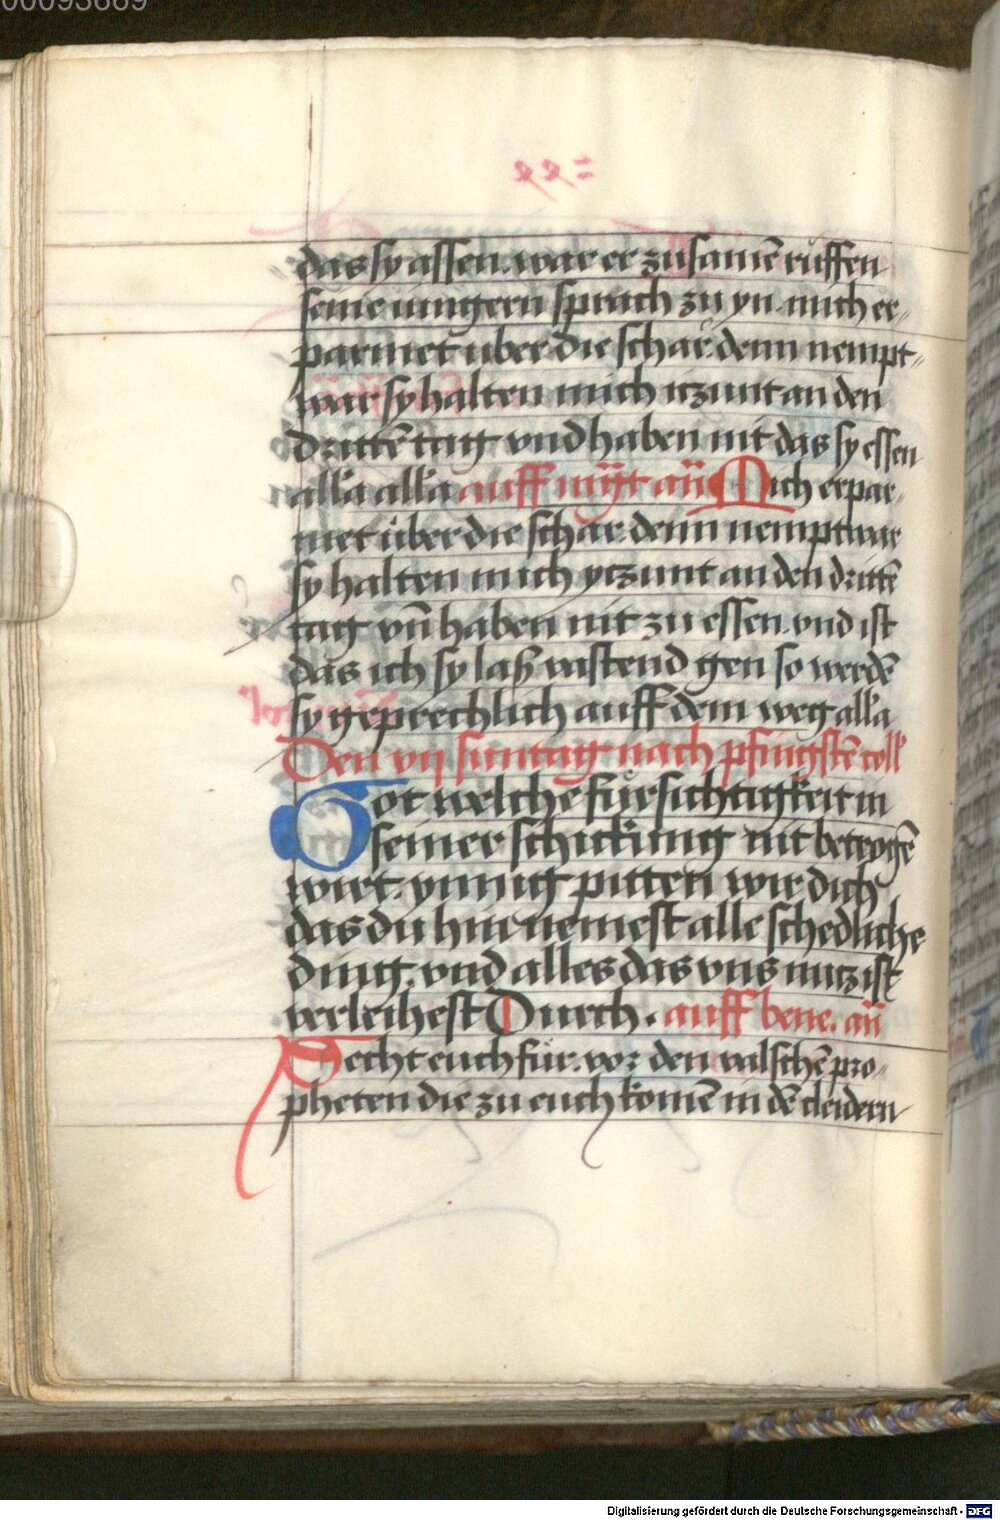 das sy assen. war er zusamē rüffen
seine iungern sprach zu yn. mich er-
parmet uber die schar. denn nempt-
war sy halten mich iczunt an den
drittē tag vnd haben nit das sy essen
all'a all'a auff mgt an Mich erpar-
met über die schar. denn nemptwar
sy halten mich yczunt an den drittē
tag vn̄ haben nit zu essen. vnd ist
das ich sy laß vastend gen so werdē
sy geprechlich auff dem weg all'a
Den vij suntag nach pfingstē coll'
Got welche fürsichtigkeit in
seiner schickung nit betrogē
wirt. ynnig pitten wir dich
das du hin nemest alle schedliche
ding. vnd alles das vns nutz ist
verleihest Durch. auff bene. an
Secht euch für. vor den valschē pro-
pheten die zu euch komē in dē cleidern
Digitalisierung gefördert durch die Deutsche Forschungsgemeinschaft - DFG